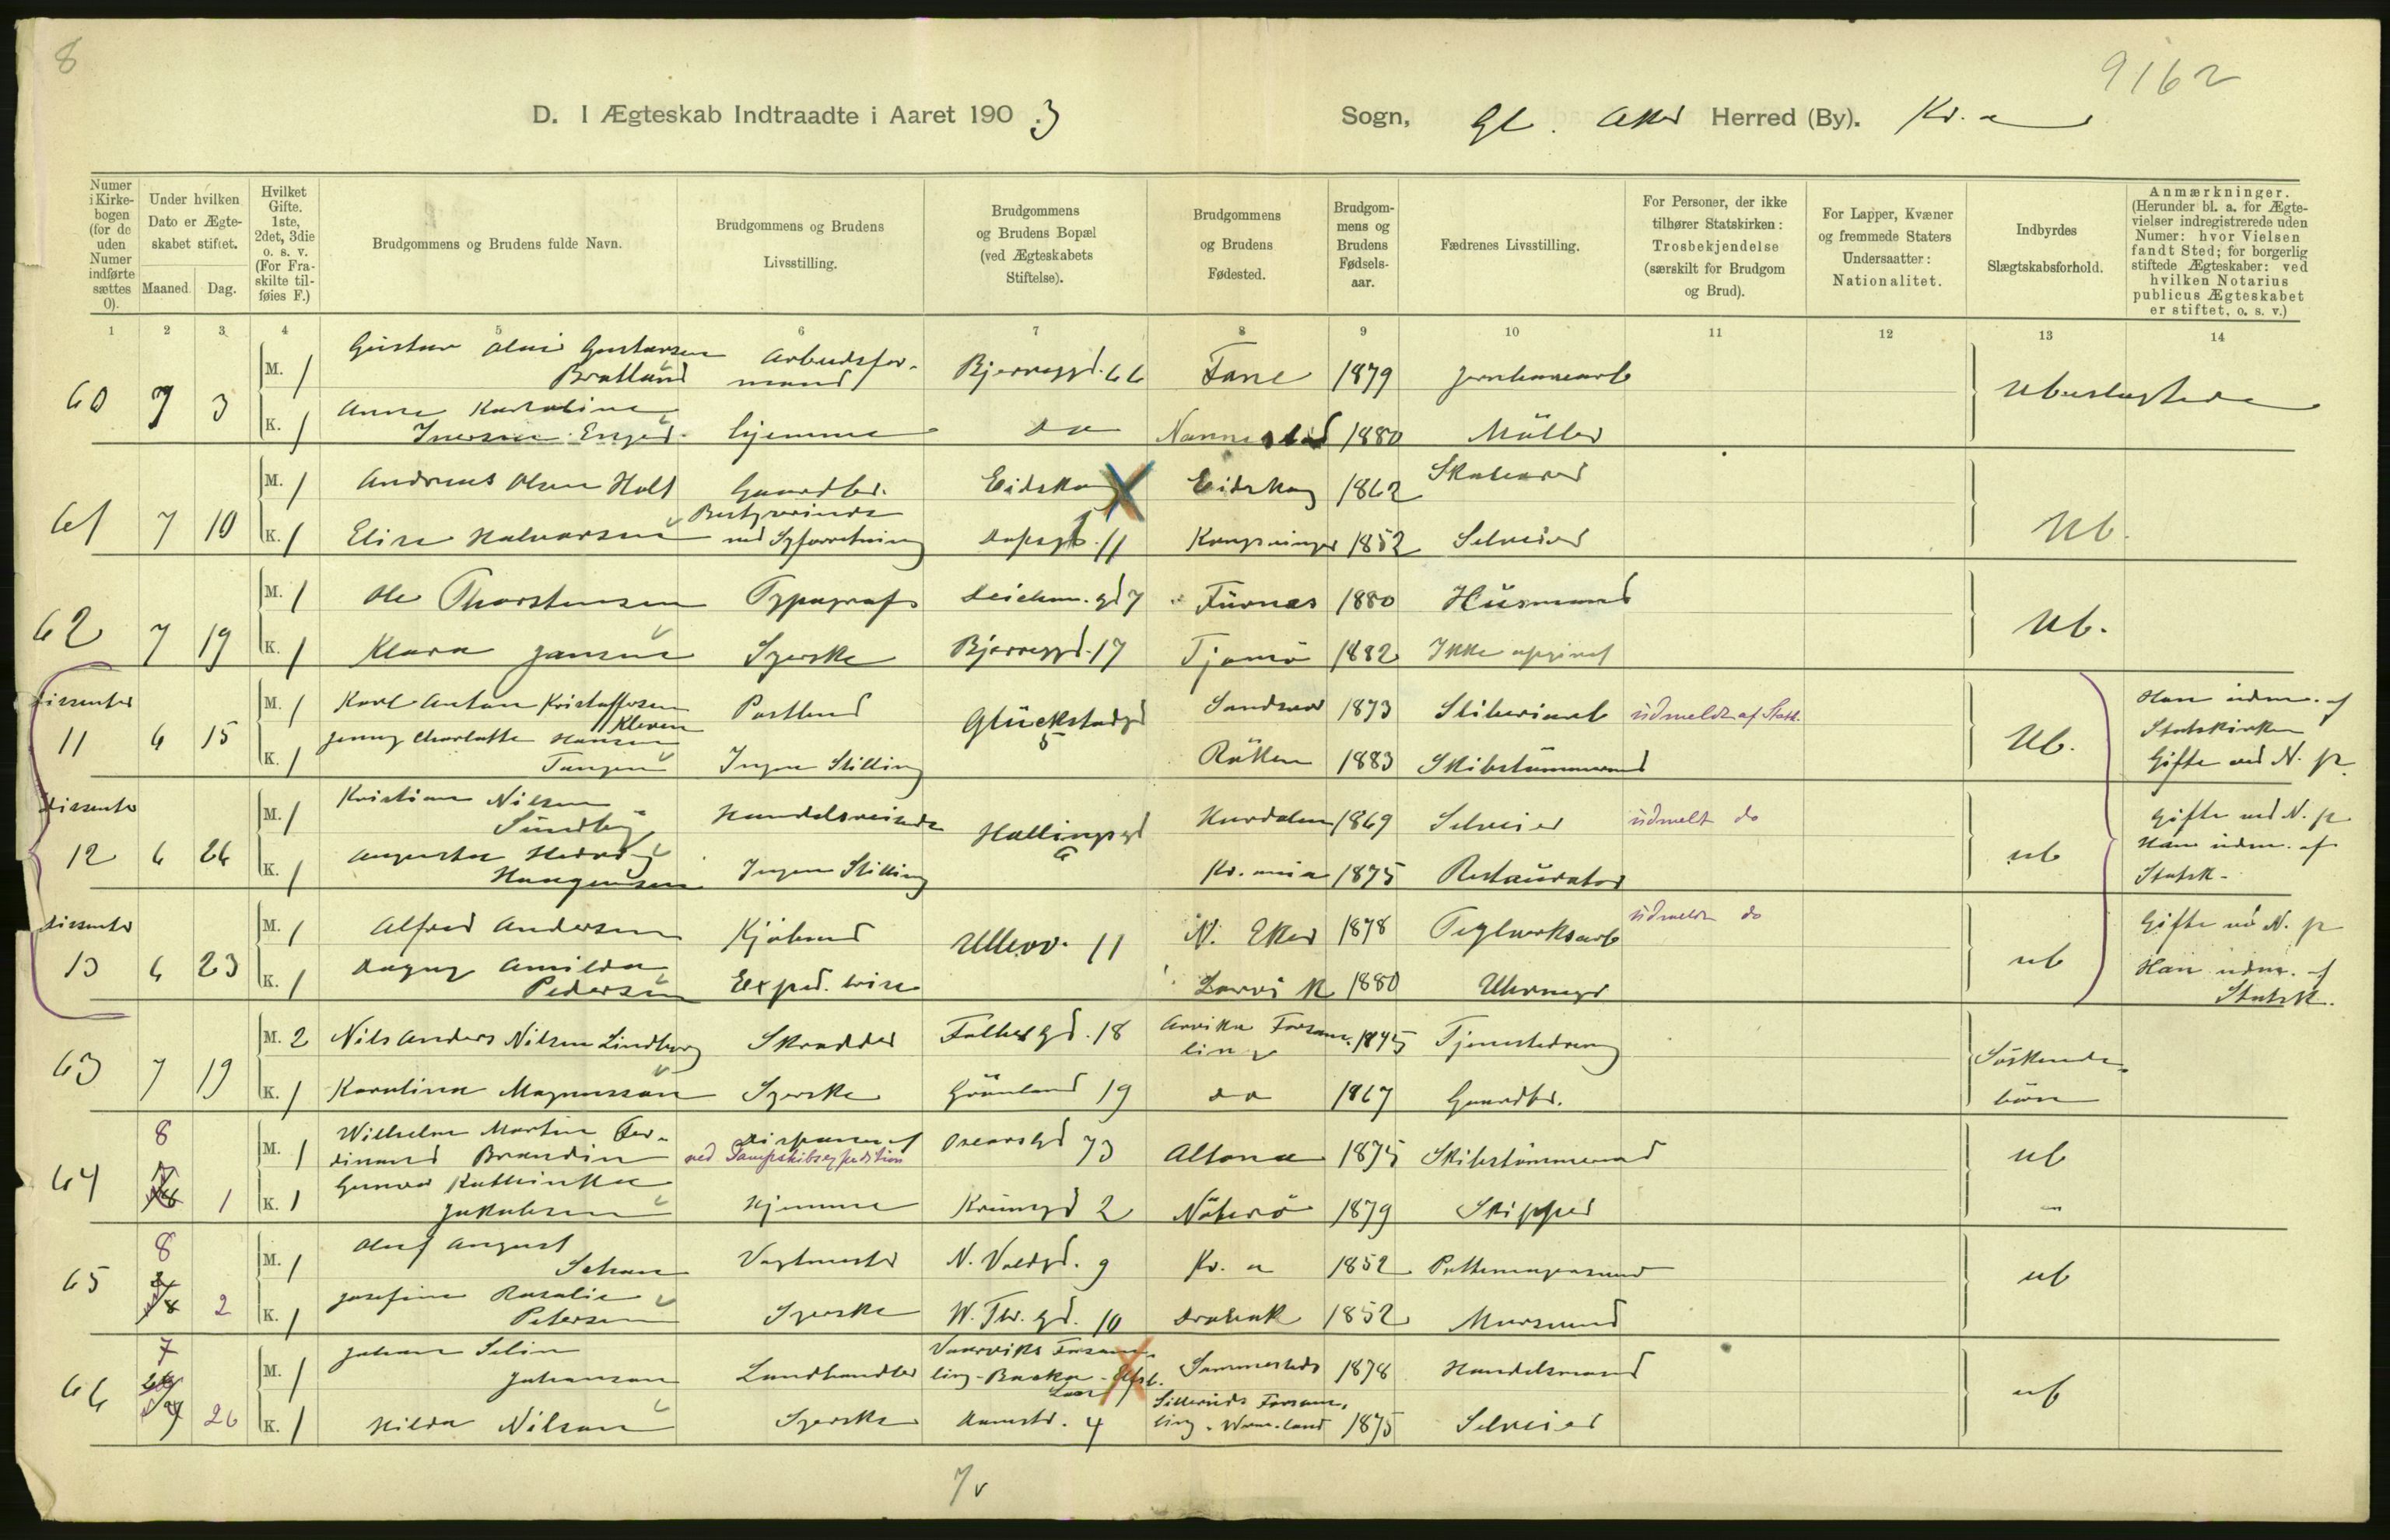 8
9162
D. I Ægteskab Indtraadte i Aaret 1903
Sogn, Gl. Aker Herred (By). Kr.a
Numer i Kirkebogen (for de uden Numer indførte sættes 0).
Under hvilken Dato er Ægteskabet stiftet.
Maaned. Dag.
Hvilket Gifte. 1ste, 2det, 3die o. s. v. (For Fraskilte tilføies F.)
Brudgommens og Brudens fulde Navn.
Brudgommens og Brudens Livsstilling.
Brudgommens og Brudens Bopæl (ved Ægteskabets Stiftelse).
Brudgommens og Brudens Fødested.
Brudgommens og Brudens Fødselsaar.
Fædrenes Livsstilling.
For Personer, der ikke tilhører Statskirken: Trosbekjendelse (særskilt for Brudgom og Brud).
For Lapper, Kvæner og fremmede Staters Undersaatter: Nationalitet.
Indbyrdes Slægtskabsforhold.
Anmærkninger. (Herunder bl. a. for Ægtevielser indregistrerede uden Numer: hvor Vielsen fandt Sted; for borgerlig stiftede Ægteskaber: ved hvilken Notarius publicus Ægteskabet er stiftet, o. s. v.)
1 2 3 4 5 6 7 8 9 10 11 12 13 14
60 7 3 M. 1 Gustav Olai Gustavsen Bratland Arbeidsformand Bjerregd. 66 Fane 1879 Ubeslegtede
K. 1 Anna Karoline Iversen Enger hjemme do Nannestad 1880 Möller
61 7 10 M. 1 Andreas Olsen Holt Gaardbr. Eidskog Eidskog 1862 Ub.
K. 1 Elise Halvorsen Bestyrerinde ved Syforretning Dopsgd. 11 Kongsvinger 1852 Selveier
62 7 19 M. 1 Ole Thorstensen Typograf Deichm. gd 7 Furnes 1880 Husmand Ub.
K. 1 Klara Jansen Syerske Bjerregd. 17 Tjømø 1882 Ikke opgivet
Dissenter 11 6 15 M. 1 Karl Anton Kristoffersen Kleven Postbud Glückstadgd 5 Sandsvær 1873 Sliberiarb udmeldt af Statk. Ub. Han udm. af Statskirken
K. 1 Jenny Charlotte Hansen Tangen Ingen Stilling Röken 1883 Skibstömmermand Gifte ved N. p.
Dissenter 12 6 26 M. 1 Kristian Nilsen Sundby Handelsreisende Hallingsgd 6 Hurdalen 1869 Selveier udmelt do ub Gifte ved N. p
K. 1 Augusta Hedvig Haagensen Ingen Stilling Kr.ania 1875 Restauratør Han udm. af Statsk.
Dissenter 13 6 23 M. 1 Alfred Andersen Kjøbmd Ullevv. 11 N. Eker 1878 Teglverksarb udmeldt do ub Gifte ved N. p
K. 1 Dagny Amilda Pedersen Exped. trise Larvik 1880 Uhrmgr Han udm. af Statsk.
63 7 19 M. 2 Nils Anders Nilsen Lindberg Skrædder Falbesgd. 18 Arvika Forsamling 1845 Tjenestedreng Söskendebörn
K. 1 Karolina Magnusson Syerske Grönland 19 do 1867 Gaardbr.
64 8 1 M. 1 Wilhelm Martin Ferdinand Brandin Disponent ved Dampskibsexpedition Oscarsgd 73 Altona 1875 Skibstömmermand ub
K. 1 Gunvor Kathinka Jakobsen Hjemme Krumgd 2 Nöterö 1879 Skipper
65 8 2 M. 1 Oluf August Vagtmester N. Voldgd. 9 Kr.a 1852 Pottemagersvend ub
K. 1 Josefine Rosalie Petersen Syerske W. Thr. gd. 10 Drøbak 1852 Mursvend
66 7 26 M. 1 Johan Selin Johanson Landhandler Sammesteds 1878 Handelsmand ub
K. 1 Hilda Nilsson Syerske Damstr. 4 Silleruds Forsamling. Wermland 1875 Selveier